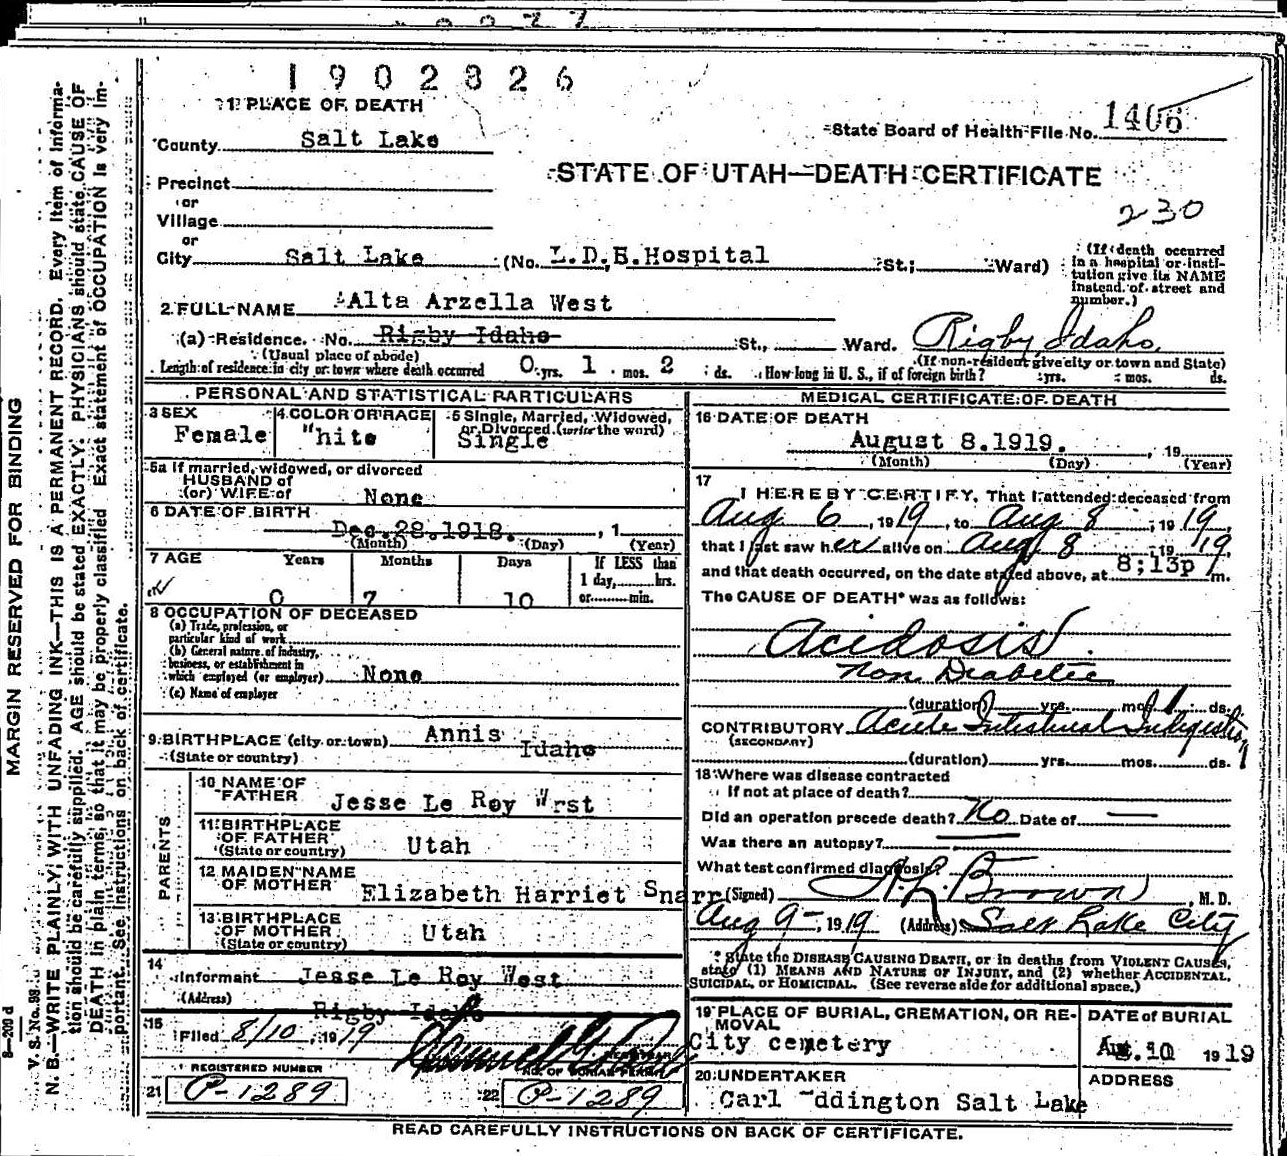 1902326
1 PLACE OF DEATH
State Board of Health File No. 1406
County Salt Lake
STATE OF UTAH—DEATH CERTIFICATE
Precinct
or
230
Village
or
City Salt Lake (No. L.D.S.Hospital St.; Ward)
(If death occurred in a hospital or institution give its NAME instead of street and number.)
2 FULL NAME Alta Arzella West
(a) Residence. No. Rigby Idaho St., Ward. Rigby Idaho.
(Usual place of abode) (If non-resident give city or town and State)
Length of residence in city or town where death occurred 0 yrs. 1 mos. 2 ds. How long in U. S., if of foreign birth? yrs. mos. ds.
PERSONAL AND STATISTICAL PARTICULARS
3 SEX 4 COLOR OR RACE 5 Single, Married, Widowed,
or Divorced (write the word)
Female "hite Single
5a If married, widowed, or divorced
HUSBAND of
(or) WIFE of None
6 DATE OF BIRTH
Dec.28.1918. , 1
(Month) (Day) (Year)
7 AGE Years Months Days If LESS than
1 day, hrs.
0 7 10 or min.
8 OCCUPATION OF DECEASED
(a) Trade, profession, or
particular kind of work
(b) General nature of industry,
business, or establishment in
which employed (or employer) None
(c) Name of employer
9 BIRTHPLACE (city or town) Annis
Idaho
(State or country)
PARENTS
10 NAME OF
FATHER Jesse Le Roy Wrst
11 BIRTHPLACE
OF FATHER
(State or country) Utah
12 MAIDEN NAME
OF MOTHER Elizabeth Harriet Snarr
13 BIRTHPLACE
OF MOTHER
(State or country) Utah
14
Informant Jesse Le Roy West
(Address)
Rigby Idaho
15
Filed 8/10, 1919
REGISTERED NUMBER NO. OF BURIAL PERMIT
21 P-1289 22 P-1289
MEDICAL CERTIFICATE OF DEATH
16 DATE OF DEATH
August 8.1919. , 19
(Month) (Day) (Year)
17
I HEREBY CERTIFY, That I attended deceased from
Aug 6, 1919, to Aug 8, 1919,
that I last saw her alive on Aug 8, 1919
and that death occurred, on the date stated above, at 8;13p m.
The CAUSE OF DEATH* was as follows:
Acidosis
Non Diabetic
(duration) yrs. mos. 1 ds.
CONTRIBUTORY Acute Intestinal Indigestion
(SECONDARY)
(duration) yrs. mos. ds.
18 Where was disease contracted
If not at place of death?
Did an operation precede death? No Date of —
Was there an autopsy?
What test confirmed diagnosis?
(Signed) A.L. Brown, M. D.
Aug 9—, 1919 (Address) Salt Lake City
* State the DISEASE CAUSING DEATH, or in deaths from VIOLENT CAUSES,
state (1) MEANS AND NATURE OF INJURY, and (2) whether ACCIDENTAL,
SUICIDAL, or HOMICIDAL. (See reverse side for additional space.)
19 PLACE OF BURIAL, CREMATION, OR RE-
MOVAL
City cemetery
DATE of BURIAL
Aug.10 1919
20 UNDERTAKER ADDRESS
Carl ddington Salt Lake
READ CAREFULLY INSTRUCTIONS ON BACK OF CERTIFICATE.
MARGIN RESERVED FOR BINDING
8—200 d
V. S. No. 98
N. B.—WRITE PLAINLY, WITH UNFADING INK—THIS IS A PERMANENT RECORD. Every item of informa-
tion should be carefully supplied. AGE should be stated EXACTLY. PHYSICIANS should state CAUSE OF
DEATH in plain terms, so that it may be properly classified. Exact statement of OCCUPATION is very im-
portant. See instructions on back of certificate.